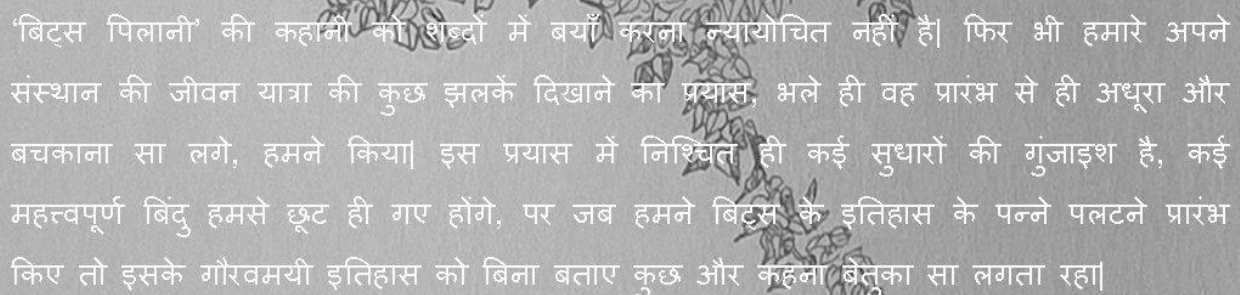 ‘बिट्स पिलानी’ की कहानी को शब्दों में बयाँ करना न्यायोचित नहीं है| फिर भी हमारे अपने
संस्थान की जीवन यात्रा की कुछ झलकें दिखाने का प्रयास, भले ही वह प्रारंभ से ही अधूरा और
बचकाना सा लगे, हमने किया| इस प्रयास में निश्चित ही कई सुधारों की गुंजाइश है, कई
महत्त्वपूर्ण बिंदु हमसे छूट ही गए होंगे, पर जब हमने बिट्स के इतिहास के पन्ने पलटने प्रारंभ
किए तो इसके गौरवमयी इतिहास को बिना बताए कुछ और कहना बेतुका सा लगता रहा|